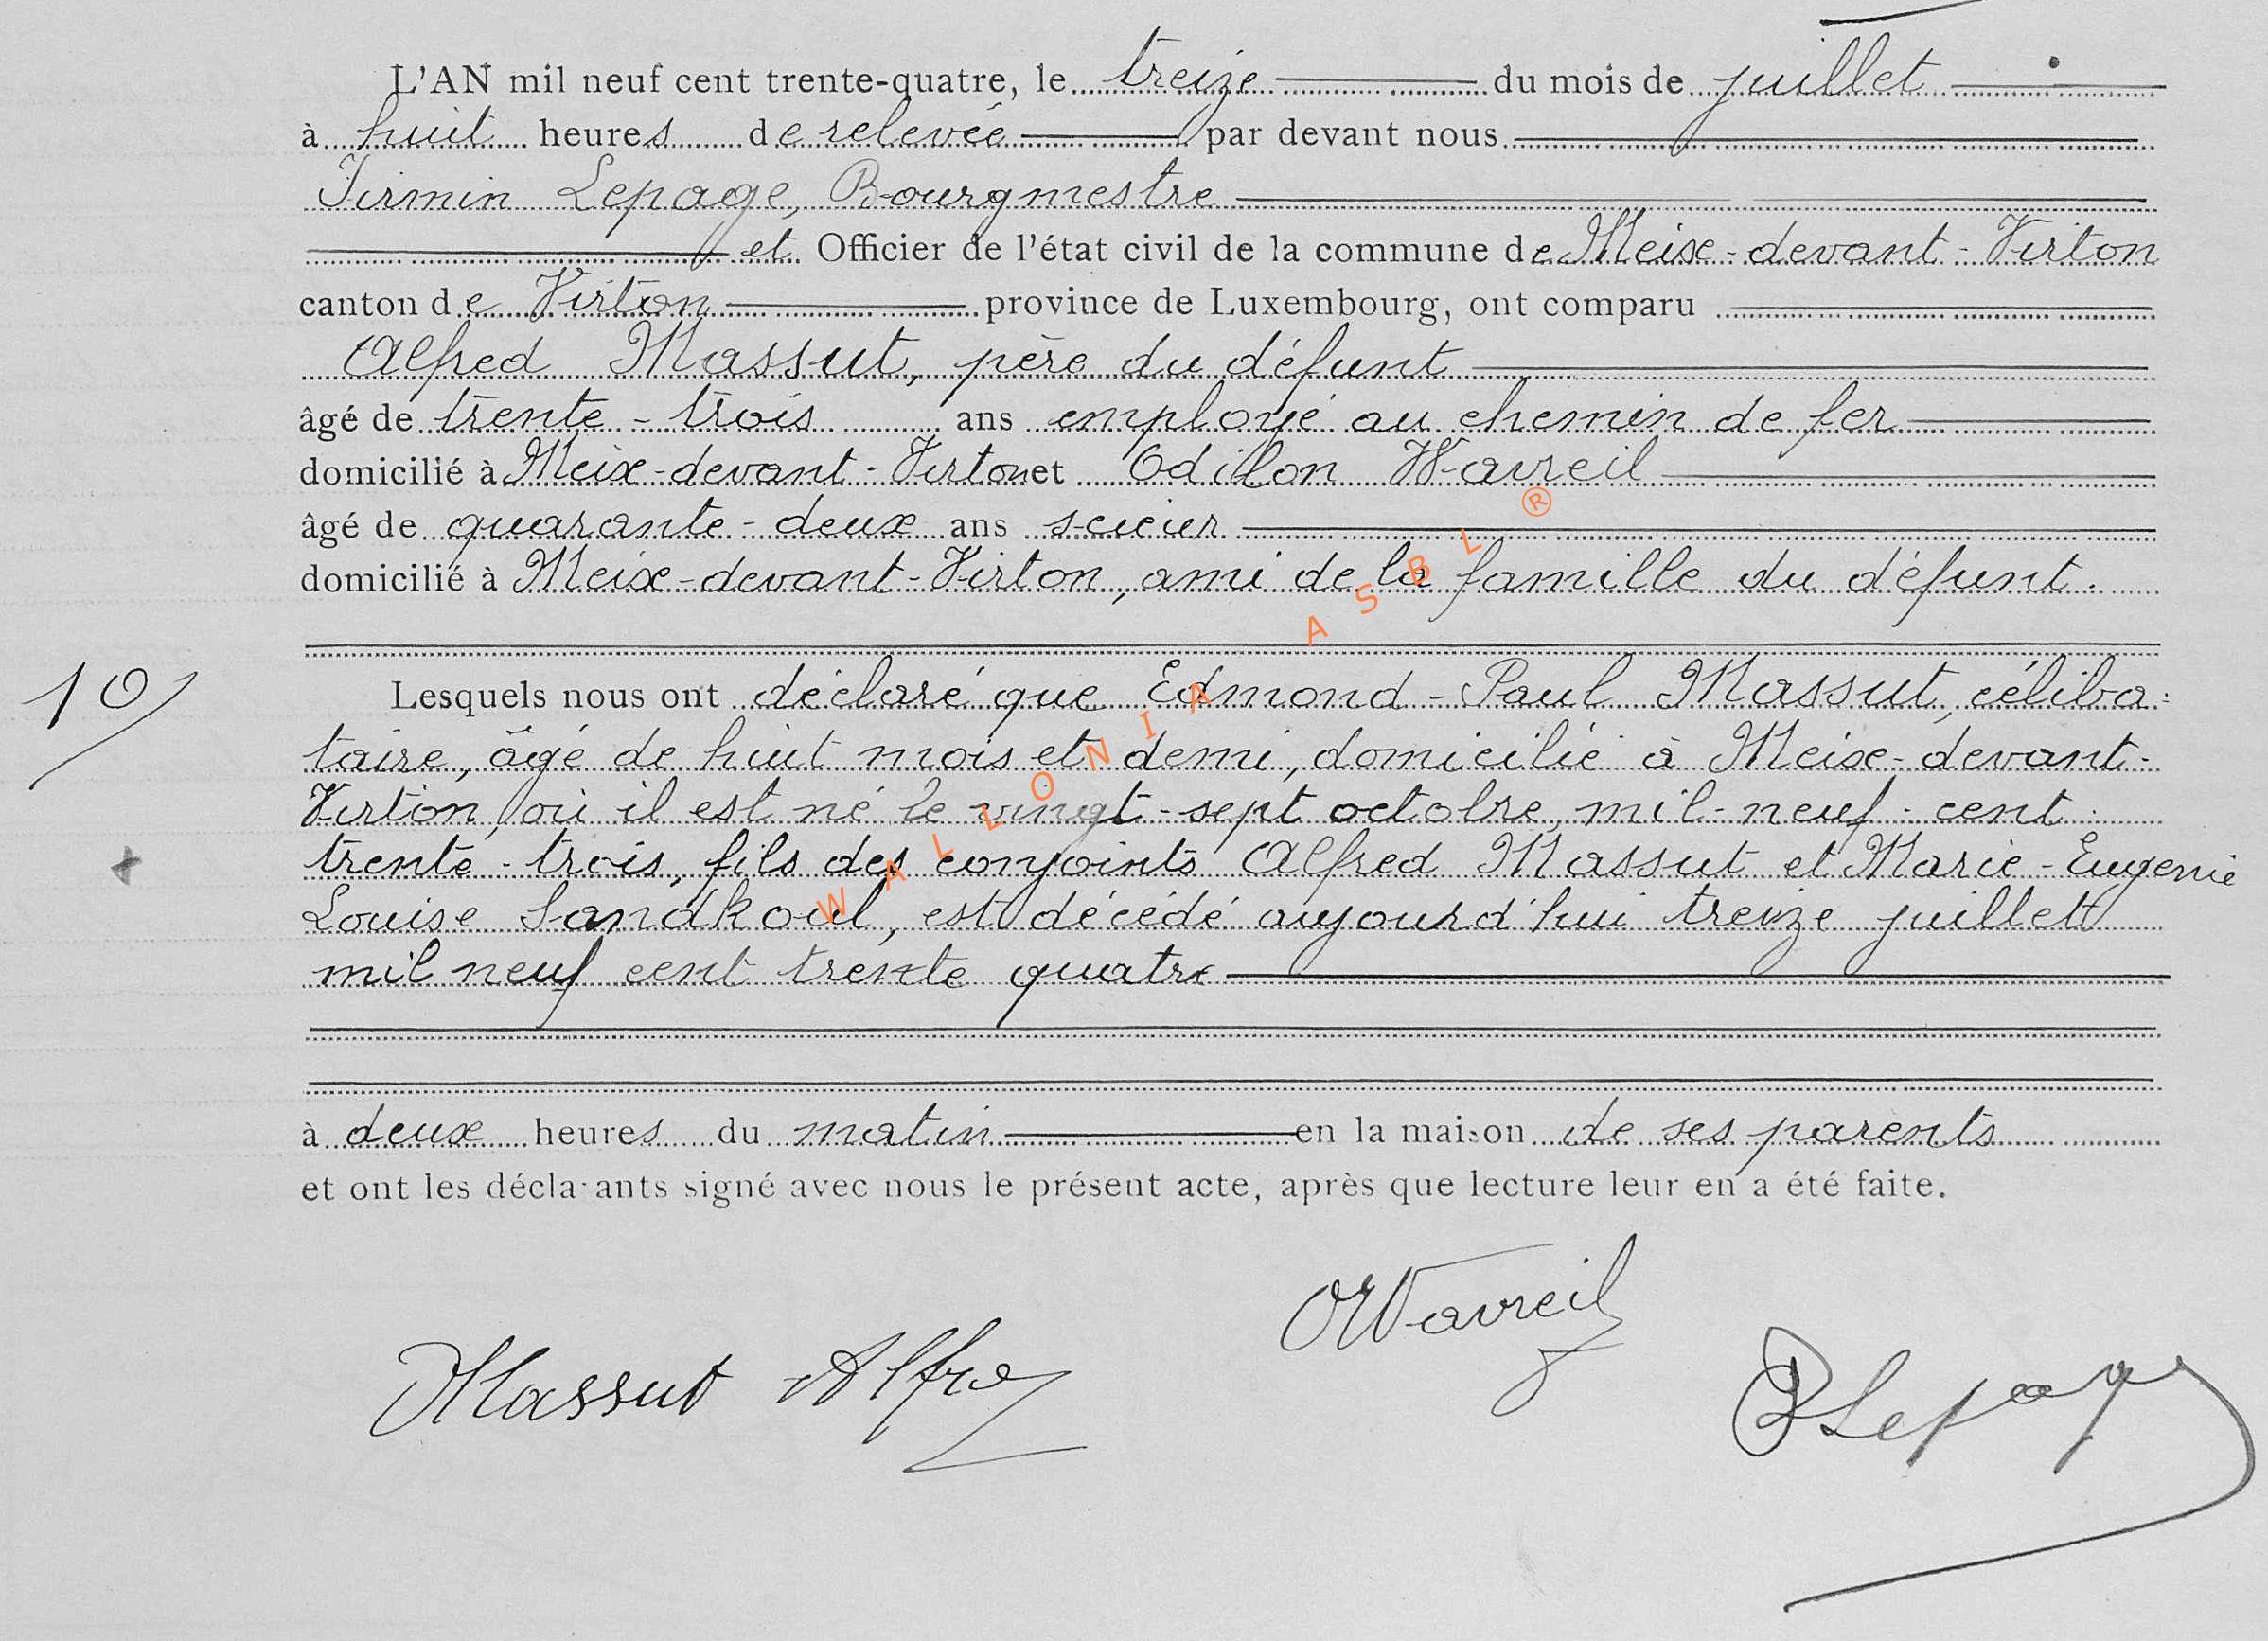 L'AN mil neuf cent trente-quatre, le treize du mois de juillet
à huit heures de relevée par devant nous
Firmin Lepage, Bourgmestre
et Officier de l'état civil de la commune de Meix-devant-Virton
canton de Virton province de Luxembourg, ont comparu
Alfred Massut, père du défunt
âgé de trente-trois ans employé au chemin de fer
domicilié à Meix-devant-Virton et Odillon Wavreil
âgé de quarante-deux ans scieur
domicilié à Meix-devant-Virton, ami de la famille du défunt.
10
Lesquels nous ont déclaré que Edmond-Paul Massut, céliba=
taire, âgé de huit mois et demi, domicilié à Meix-devant-
Virton, où il est né le vingt-sept octobre mil-neuf-cent
trente-trois, fils des conjoints Alfred Massut et Marie-Eugenie
Louise Sandkoul, est décédé aujourd'hui treize juillet
mil neuf cent trente quatre
à deux heures du matin en la maison de ses parents
et ont les déclarants signé avec nous le présent acte, après que lecture leur en a été faite.
OWavreil
Massut Alfred
Lepage
WALLONIA ASBL ®